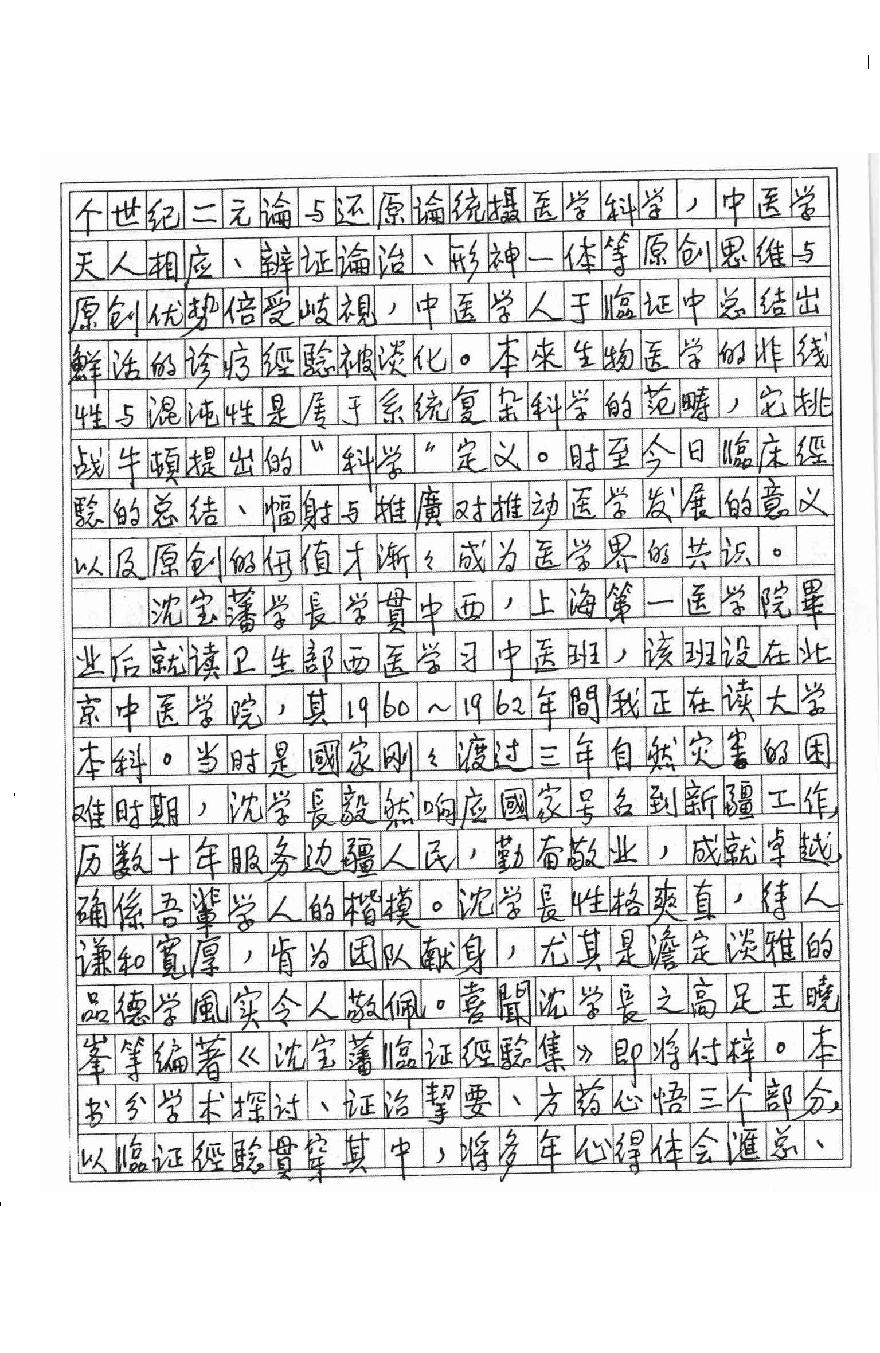 个世纪二元论与还原论统摄医学科学，中医学
天人相应、辨证论治、形神一体等原创思维与
原创优势倍受歧視，中医学人于臨证中总结出
鮮活的诊疗經驗被淡化。本來生物医学的非线
性与混沌性是属于系统复杂科学的范疇，它挑
战牛頓提出的“科学”定义。时至今日臨床經
驗的总结、幅射与推廣对推动医学发展的意义
以及原创的价值才渐々成为医学界的共识。
沈宝藩学長学貫中西，上海第一医学院畢
业后就读卫生部西医学习中医班，该班设在北
京中医学院，其1960～1962年間我正在读大学
本科。当时是國家刚々渡过三年自然灾害的困
难时期，沈学長毅然响应國家号召到新疆工作，
历数十年服务边疆人民，勤奋敬业，成就卓越，
确係吾輩学人的楷模。沈学長性格爽直，待人
谦和寬厚，肯为团队献身，尤其是澹定淡雅的
品德学風实令人敬佩。喜聞沈学長之高足王曉
峯等編著《沈宝藩臨证經驗集》即将付梓。本
书分学术探讨、证治挈要、方药心悟三个部分，
以臨证經驗貫穿其中，将多年心得体会滙总、